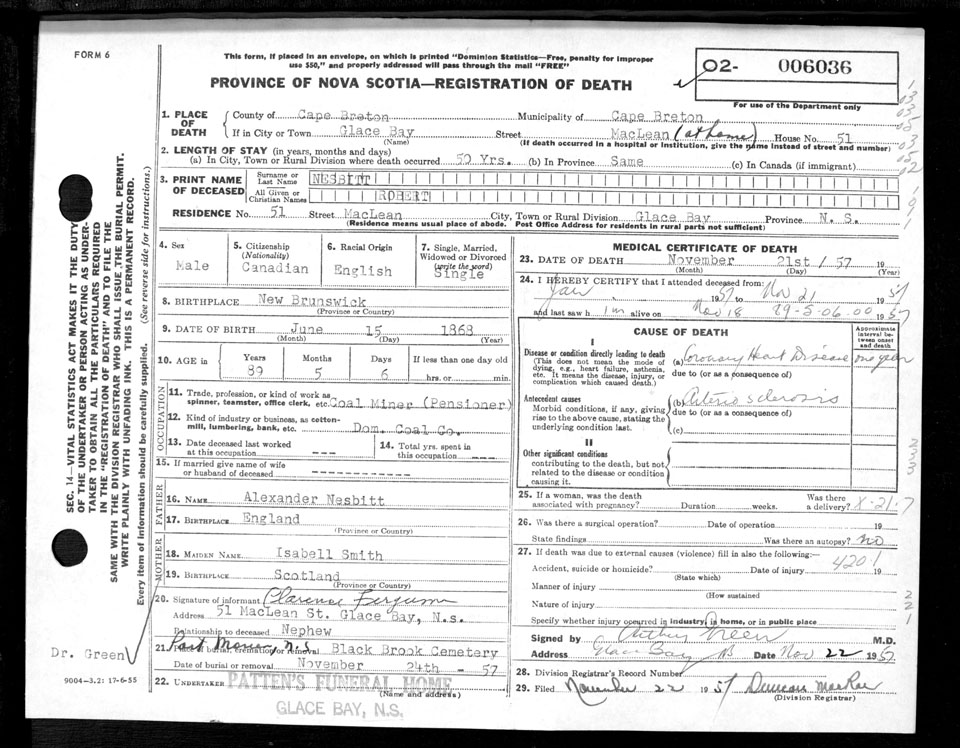 FORM 6
This form, if placed in an envelope, on which is printed "Dominion Statistics—Free, penalty for improper
use $50," and properly addressed will pass through the mail "FREE"
PROVINCE OF NOVA SCOTIA—REGISTRATION OF DEATH
02- 006036
For use of the Department only
1. PLACE OF DEATH
County of Cape Breton Municipality of Cape Breton
If in City or Town Glace Bay Street MacLean (at home) House No. 51
(Name) (If death occurred in a hospital or institution, give the name instead of street and number)
2. LENGTH OF STAY (in years, months and days)
(a) In City, Town or Rural Division where death occurred 50 Yrs. (b) In Province Same (c) In Canada (if immigrant)
3. PRINT NAME OF DECEASED
Surname or Last Name NESBITT
All Given or Christian Names ROBERT
RESIDENCE No. 51 Street MacLean City, Town or Rural Division Glace Bay Province N. S.
(Residence means usual place of abode. Post Office Address for residents in rural parts not sufficient)
4. Sex
Male
5. Citizenship
(Nationality)
Canadian
6. Racial Origin
English
7. Single, Married,
Widowed or Divorced
(write the word)
Single
8. BIRTHPLACE New Brunswick
(Province or Country)
9. DATE OF BIRTH June 15 1868
(Month) (Day) (Year)
10. AGE
Years Months Days If less than one day old
89 5 6 hrs. or min.
OCCUPATION
11. Trade, profession, or kind of work as
spinner, teamster, office clerk, etc. Coal Miner (Pensioner)
12. Kind of industry or business, as cotton-
mill, lumbering, bank, etc. Dom. Coal Co.
13. Date deceased last worked
at this occupation
14. Total yrs. spent in
this occupation
15. If married give name of wife
or husband of deceased
FATHER
16. NAME Alexander Nesbitt
17. BIRTHPLACE England
(Province or Country)
MOTHER
18. MAIDEN NAME Isabell Smith
19. BIRTHPLACE Scotland
(Province or Country)
20. Signature of informant Clarence Ferguson
Address 51 MacLean St. Glace Bay, N.s.
Relationship to deceased Nephew
21. Place of burial, cremation or removal Port Morien, N.S. Black Brook Cemetery
Date of burial or removal November 24th - 57
22. UNDERTAKER PATTEN'S FUNERAL HOME
(Name and address)
GLACE BAY, N.S.
MEDICAL CERTIFICATE OF DEATH
23. DATE OF DEATH November 21st / 57 19
(Month) (Day) (Year)
24. I HEREBY CERTIFY that I attended deceased from:
Jan 1957 to Nov 21 1957
and last saw him alive on Nov 18 89-5-06-00 1957
CAUSE OF DEATH
Approximate interval between onset and death
I
Disease or condition directly leading to death
(This does not mean the mode of
dying, e.g., heart failure, asthenia,
etc. It means the disease, injury, or
complication which caused death.)
(a) Coronary Heart Disease one year
due to (or as a consequence of)
Antecedent causes
Morbid conditions, if any, giving
rise to the above cause, stating the
underlying condition last.
(b) Arterio sclerosis
due to (or as a consequence of)
(c)
II
Other significant conditions
contributing to the death, but not
related to the disease or condition
causing it.
25. If a woman, was the death
associated with pregnancy? Duration weeks. Was there a delivery? 8-21-7
26. Was there a surgical operation? Date of operation 19
State findings Was there an autopsy? no
27. If death was due to external causes (violence) fill in also the following:—
Accident, suicide or homicide? Date of injury 19
4201
(State which)
Manner of injury
(How sustained
Nature of injury
Specify whether injury occurred in industry, in home, or in public place
Signed by Arthur Green M.D.
Address Glace Bay Date Nov 22 1957
28. Division Registrar's Record Number
29. Filed November 22 1957 Duncan MacRae
(Division Registrar)
SEC. 14—VITAL STATISTICS ACT MAKES IT THE DUTY
OF THE UNDERTAKER OR PERSON ACTING AS UNDER-
TAKER TO OBTAIN ALL THE PARTICULARS REQUIRED
IN THE "REGISTRATION OF DEATH" AND TO FILE THE
SAME WITH THE DIVISION REGISTRAR WHO SHALL ISSUE THE BURIAL PERMIT.
WRITE PLAINLY WITH UNFADING INK. THIS IS A PERMANENT RECORD.
Every item of information should be carefully supplied. (See reverse side for instructions.)
Dr. Green
9004-3.2: 17-6-55